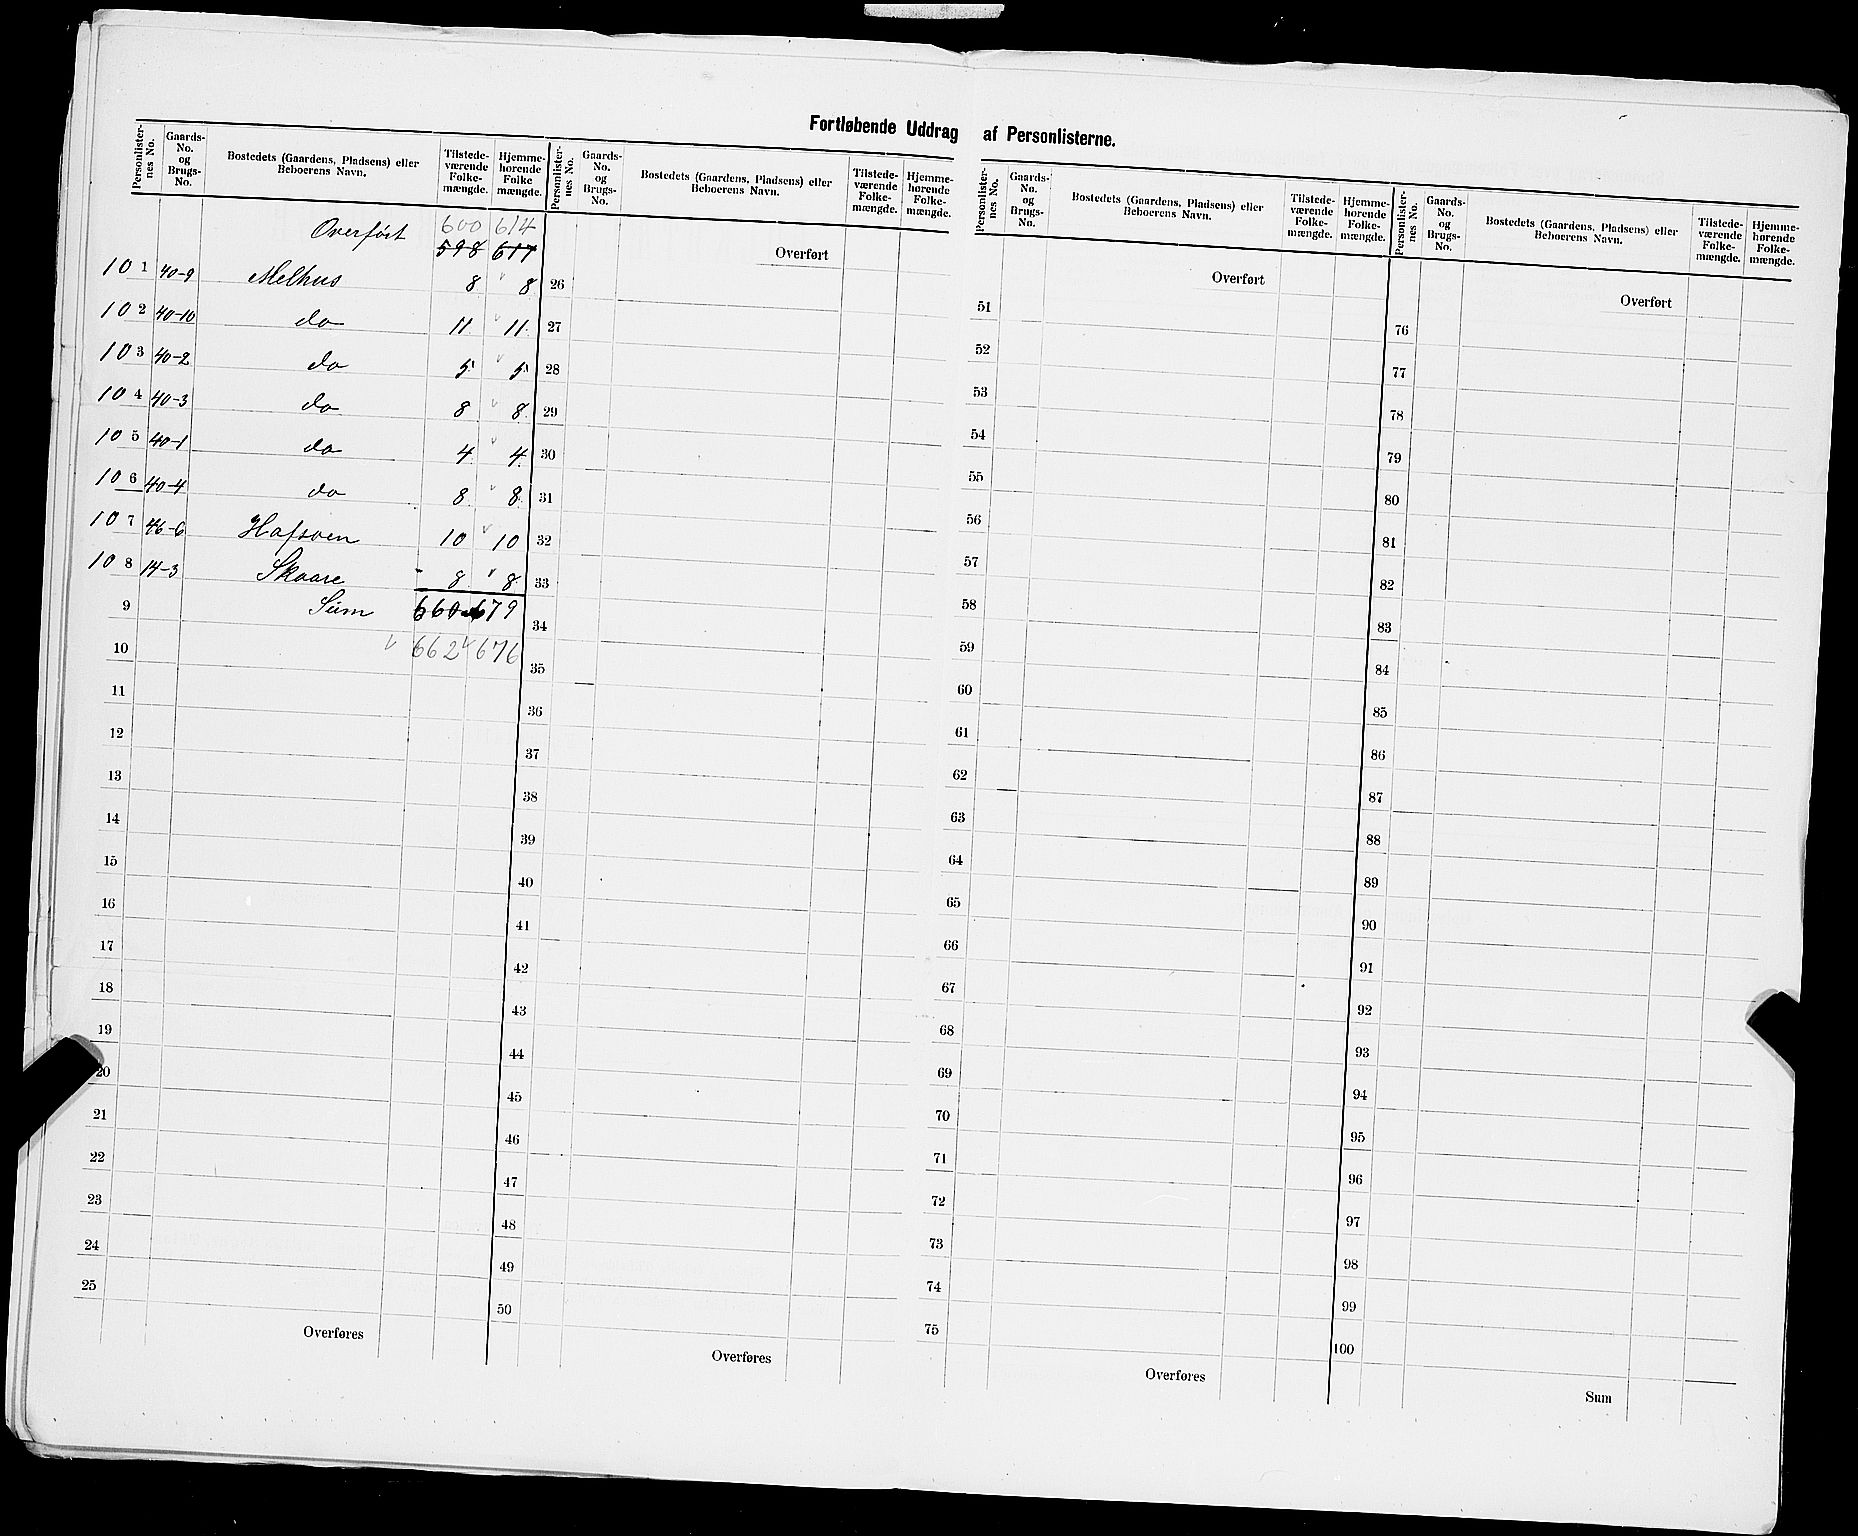 Fortløbende Uddrag af Personlisterne.
Personlister-nes No. Gaards-No. og Brugs-No. Bostedets (Gaardens, Pladsens) eller Beboerens Navn. Tilstede-værende Folke-mængde. Hjemme-hørende Folke mængde.
Overført 600 614
598 617
101 40-9 Melhus 8 8
102 40-10 do 11 11
103 40-2 do 5 5
104 40-3 do 8 8
105 40-1 do 4 4
106 40-4 do 8 8
107 46-6 Hafsoen 10 10
108 14-3 Skaare 8 8
9 Sum 660 679
10 662 676
11
12
13
14
15
16
17
18
19
20
21
22
23
24
25
Overføres
Personlister-nes No. Gaards-No. og Brugs-No. Bostedets (Gaardens, Pladsens) eller Beboerens Navn. Tilstede-værende Folke-mængde. Hjemme-hørende Folke-mængde.
Overført
26
27
28
29
30
31
32
33
34
35
36
37
38
39
40
41
42
43
44
45
46
47
48
49
50
Overføres
Personlister-nes No. Gaards-No. og Brugs-No. Bostedets (Gaardens, Pladsens) eller Beboerens Navn. Tilstede-værende Folke-mængde. Hjemme-hørende Folke-mængde.
Overført
51
52
53
54
55
56
57
58
59
60
61
62
63
64
65
66
67
68
69
70
71
72
73
74
75
Overføres
Personlister-nes No. Gaards-No. og Brugs-No. Bostedets (Gaardens, Pladsens) eller Beboerens Navn. Tilstede-værende Folke-mængde. Hjemme-hørende Folke-mængde.
Overført
76
77
78
79
80
81
82
83
84
85
86
87
88
89
90
91
92
93
94
95
96
97
98
99
100
Sum